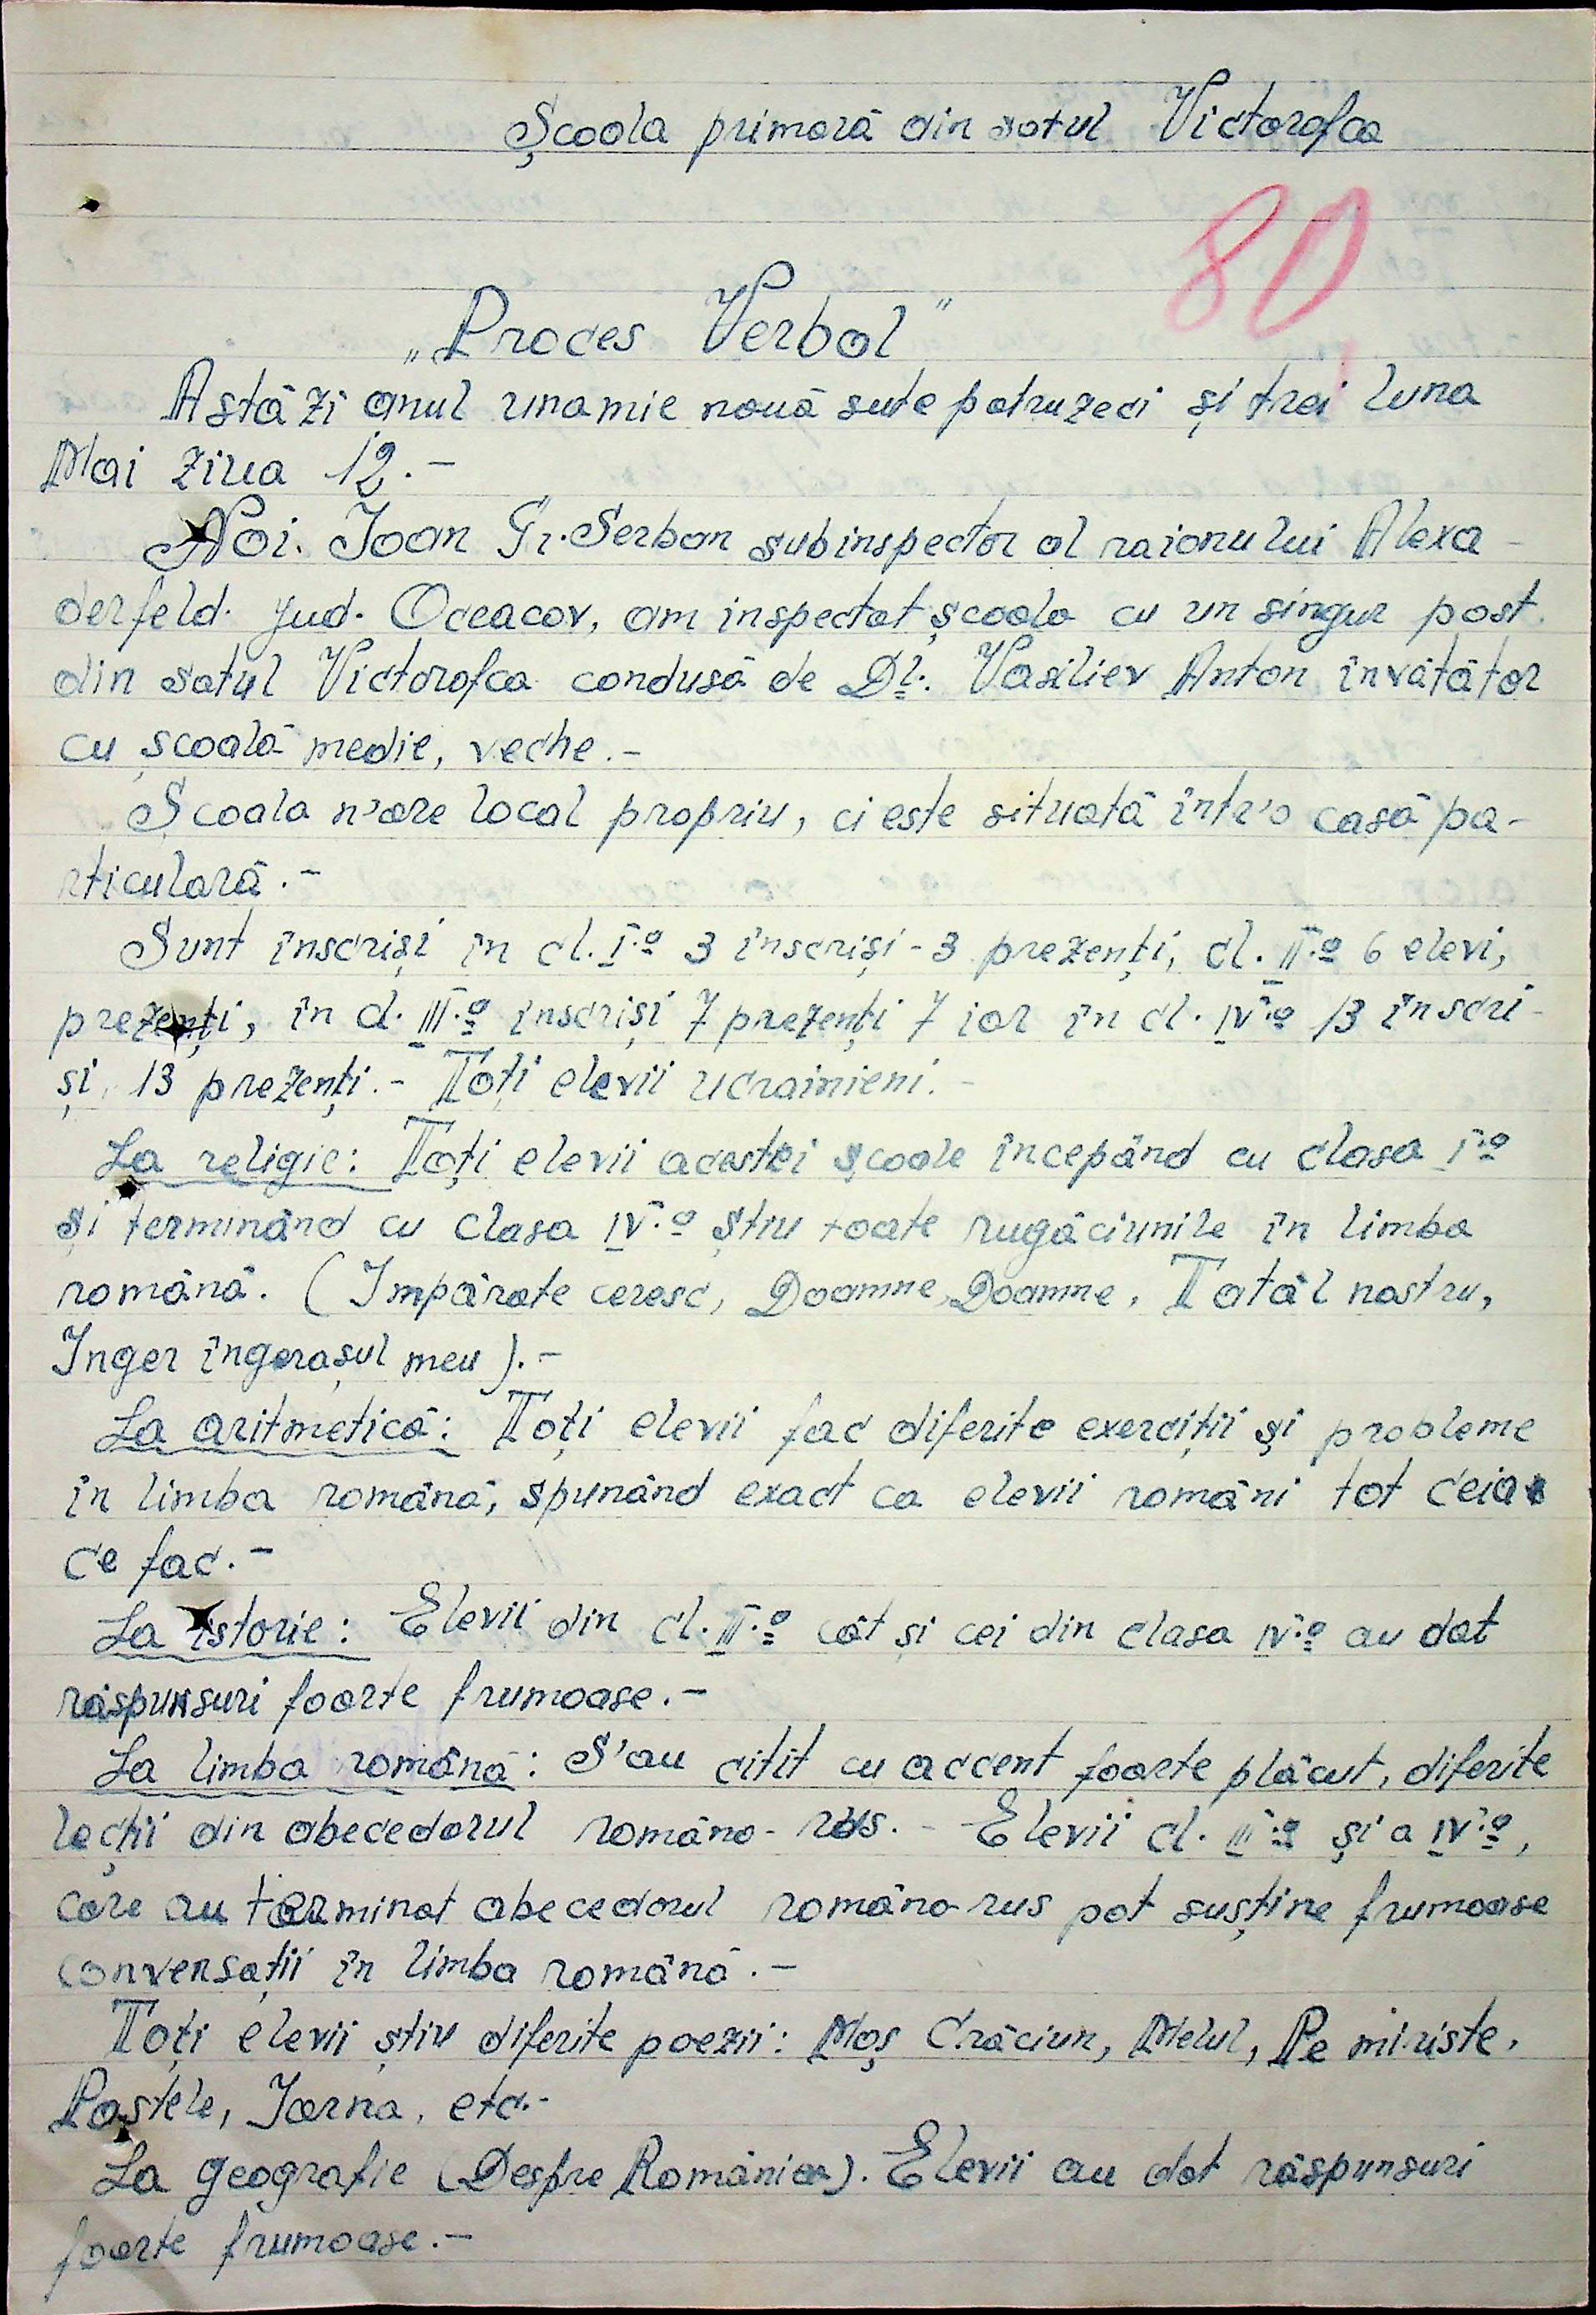 Școala primară din satul Victorofca
80
„Proces Verbal"
Astăzi anul una mie nouă sute patruzeci și trei luna
Mai ziua 12.-
Noi. Ioan Gr. Serban subinspector al raionului Alexa-
derfeld. jud. Oceacov, am inspectat școala cu un singur post
din satul Victorofca condusă de Dl. Vasiliev Anton învățător
cu școală medie, veche.-
Școala n'are local propriu, ci este situată într'o casă pa-
rticulară.-
Sunt înscriși în cl. I.a 3 înscriși - 3 prezenți, cl. II.a 6 elevi,
prezenți, în cl. III.a înscriși 7 prezenți 7 iar în cl. IV.a 13 înscri-
și, 13 prezenți.- Toți elevii ucrainieni.-
La religie: Toți elevii acestei școale începând cu clasa I.a
și terminând cu clasa IV.a știu toate rugăciunile în limba
română. (Impărate ceresc, Doamne, Doamne, Tatăl nostru,
Inger îngerașul meu).-
La aritmetică: Toți elevii fac diferite exerciții și probleme
în limba română, spunând exact ca elevii români tot ceia
ce fac.-
La istorie: Elevii din cl. III.a cât și cei din clasa IV.a au dat
răspunsuri foarte frumoase.-
La limba română: S'au citit cu accent foarte plăcut, diferite
lecții din abecedarul româno-rus.- Elevii cl. III.a și a IV.a,
care au terminat abecedarul româno-rus pot susține frumoase
conversații în limba română.-
Toți elevii știu diferite poezii: Moș Crăciun, Melul, Pe miriste,
Paștele, Iarna, etc.-
La geografie (Despre România). Elevii au dat răspunsuri
foarte frumoase.-